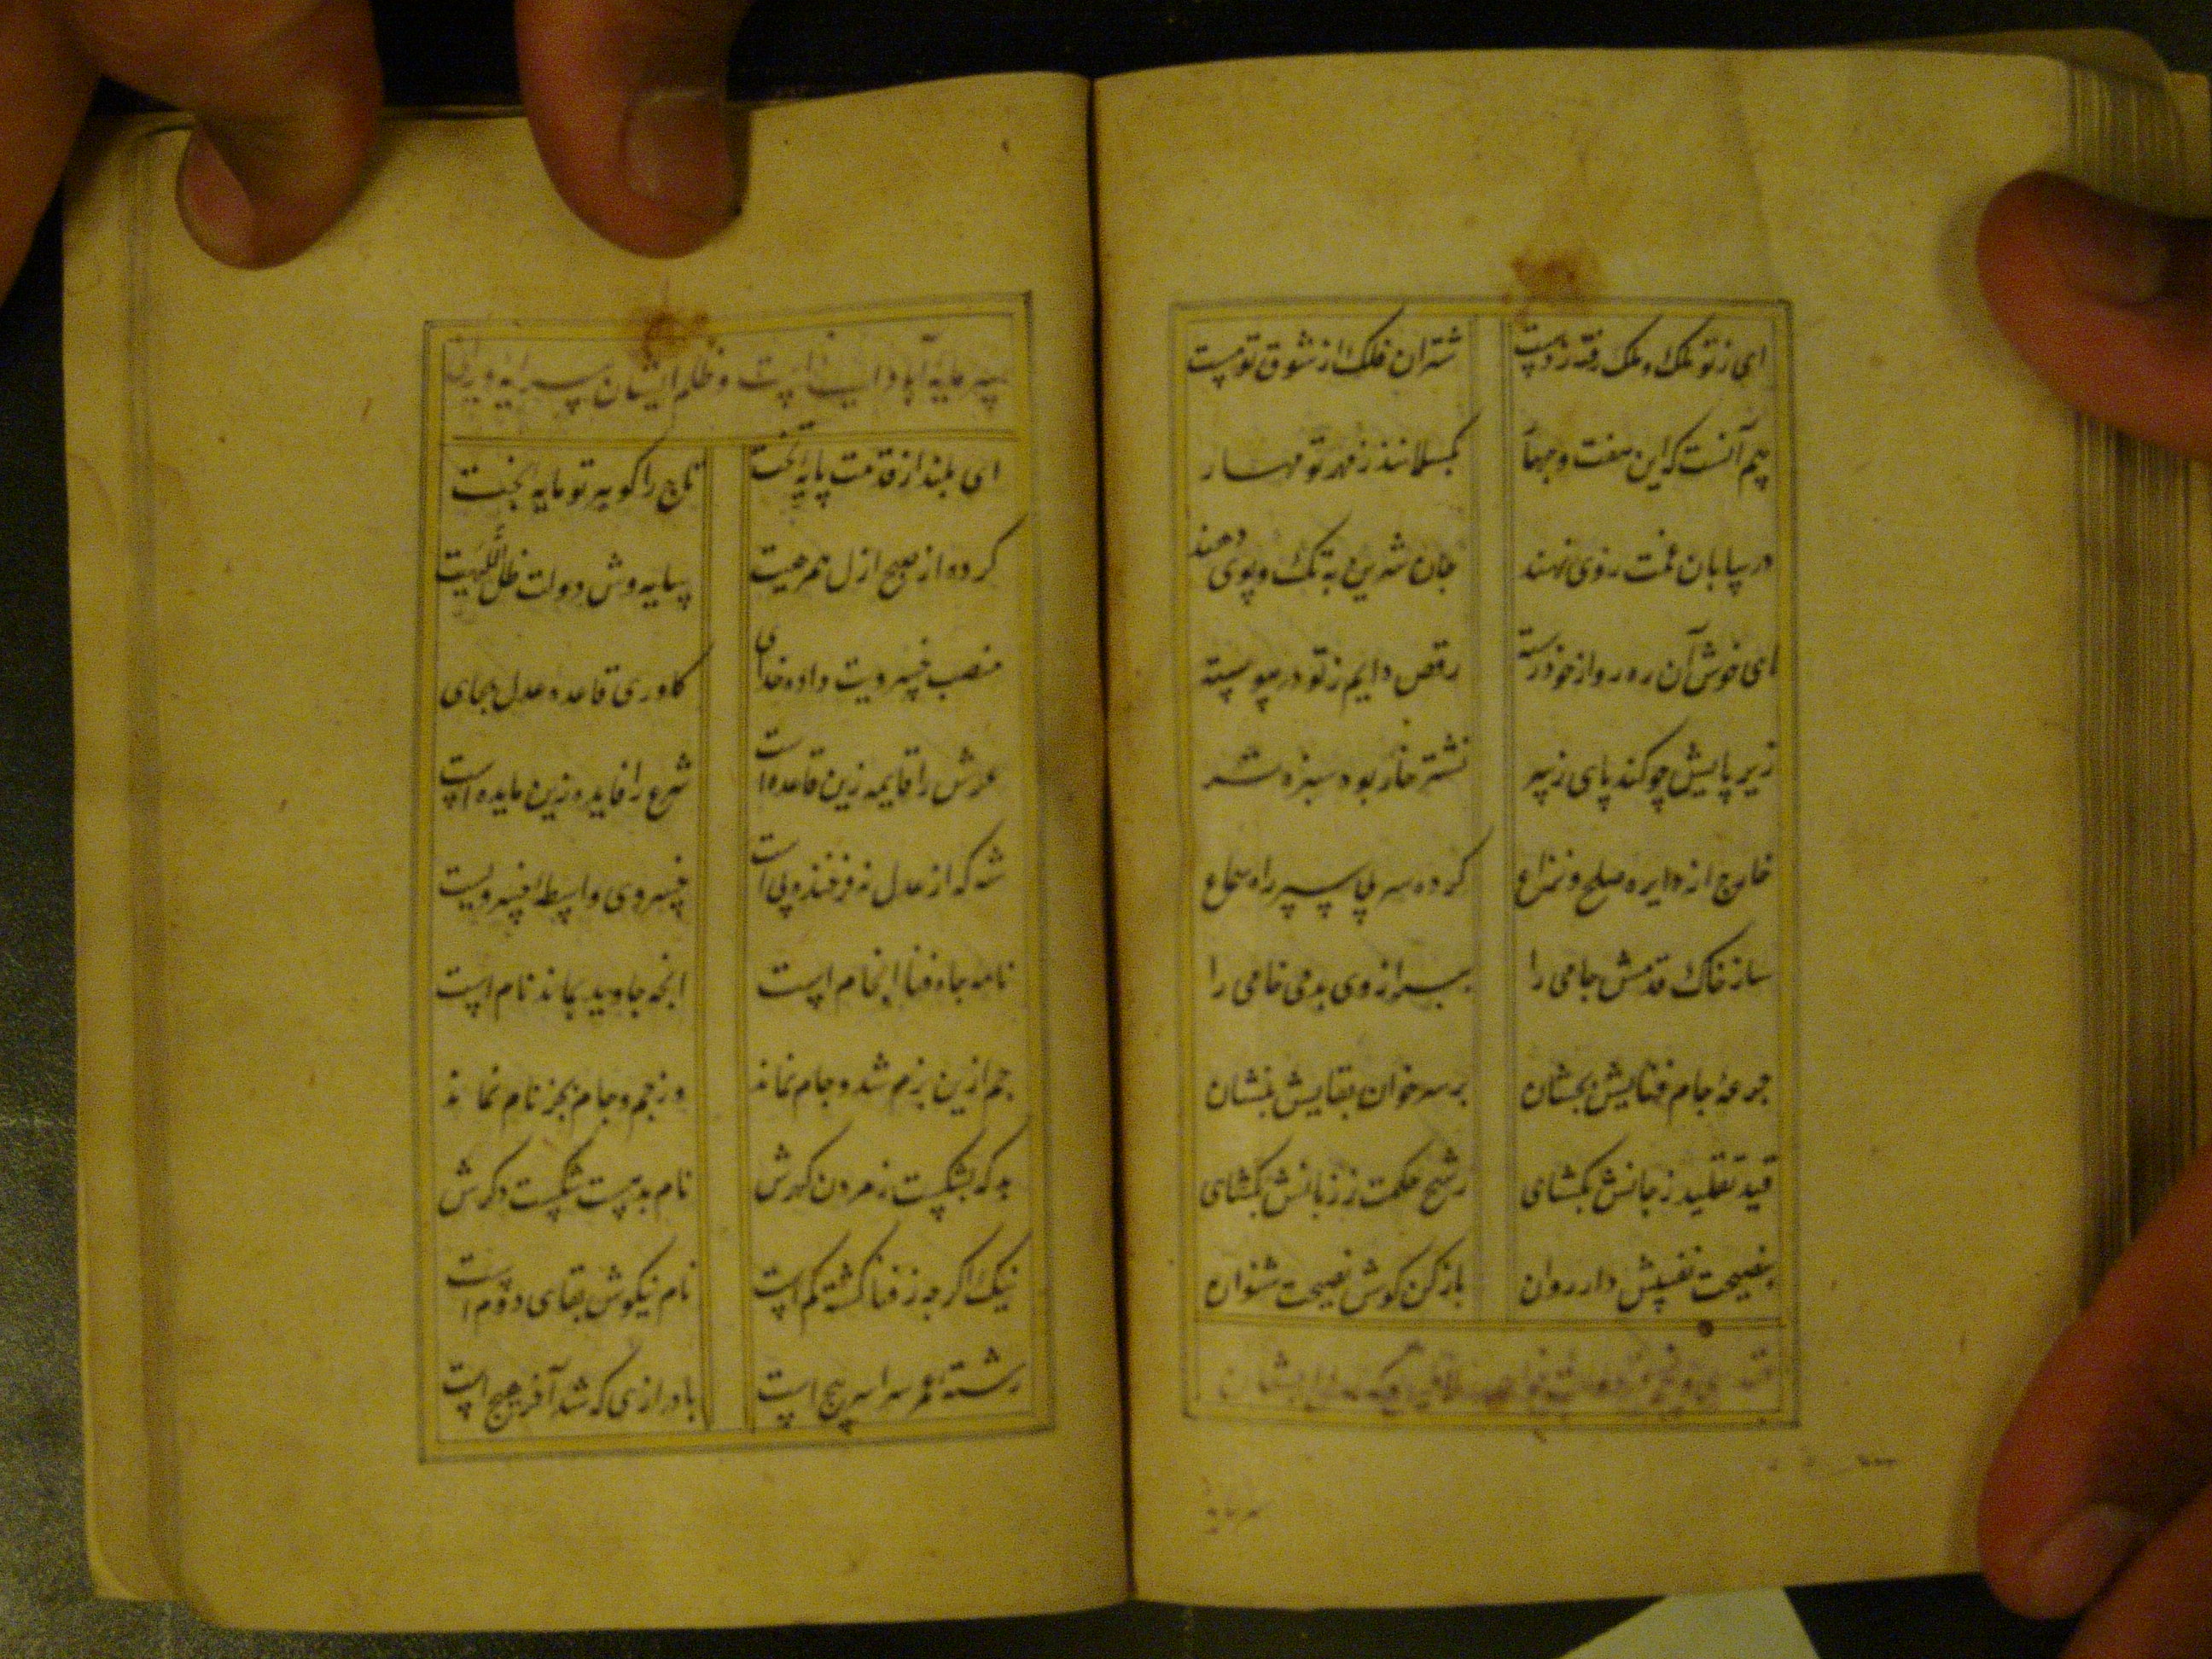 ای ز تو ملک و ملک رفته ز دست شتران فلک از شوق تو مست
بیم آنست که این هفت و چهار بکسلانند ز مهر تو مهار
در بیابان غمت روی نهند جان شیرین به تک و پوی دهند
ای خوش آن ره رو از خود رسته رقص دایم ز تو در پیوسته
زیر پایش چو کند پای ز سر نشتر خار بود سبزه تر
خارج از دایره صلح و نزاع کرده سر پی سپر راه سماع
ساز خاک قدمش جامی را ببر از وی بدمی خامی را
جرعه جام فنایش بچشان بر سر خوان بقایش بنشان
قید تقلید ز جانش بکشای رشح حکمت ز زبانش بکشای
بنصیحت نفسش دار روان باز کن کوش نصیحت شنوان
سرمایه آبادانیست و ظلم ایشان پیرایه ویرانی
ای بلند از قدمت پایه تخت تاج را کوهر تو مایه بخت
کرده از صبح ازل همرهیت سایه وش دولت ظل اللهیت
منصب خسرویت داده خدای کاوری قاعده عدل بجای
عرش را قایمه زین قاعده است شرع را فایده زین مایده است
شه که از عدل نه فرخنده پی است خسروی واسطه خسرویست
نامه جاه فنا انجام است انچه جاوید بماند نام است
جم ازین بزم شد و جام نماند وز جم و جام بجز نام نماند
بد که بشکست ز مردن کهرش نام بد هست شکست دکرش
نیک اکر چه ز فنا کشته کم است نام نیکوش بقای دوم است
رشته عمر سراسر پیچ است با درازی که شد آخر هیچ است